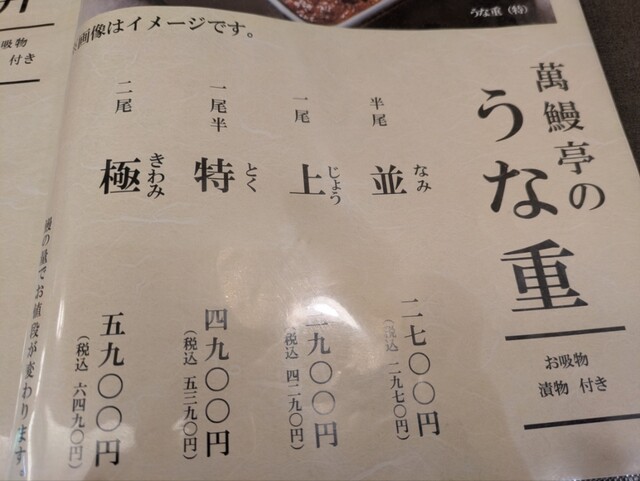 うな重（特）
※画像はイメージです。
萬鰻亭の
うな重
お吸物
漬物 付き
半尾
並
なみ
二七〇〇円
（税込 二九七〇円）
一尾
上
じょう
三九〇〇円
（税込 四二九〇円）
一尾半
特
とく
四九〇〇円
（税込 五三九〇円）
二尾
極
きわみ
五九〇〇円
（税込 六四九〇円）
鰻の量でお値段が変わります。
吸物
付き